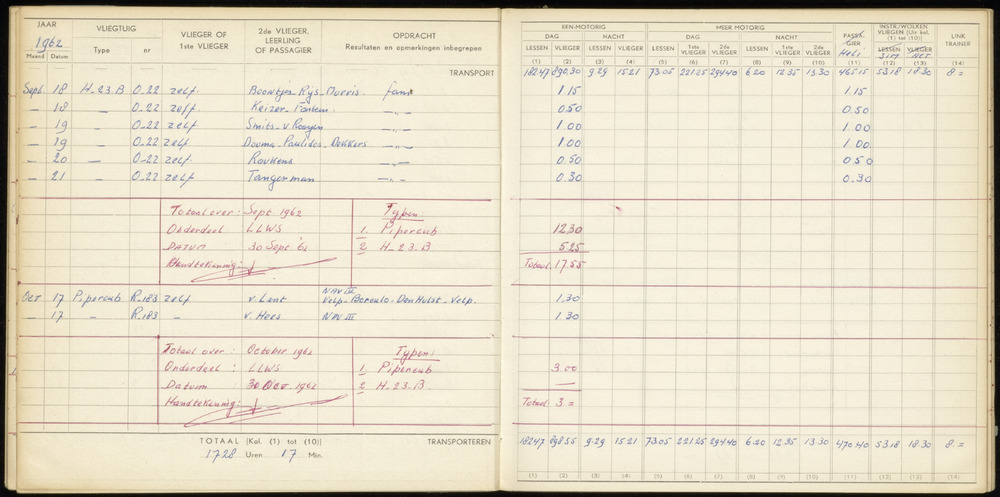 JAAR VLIEGTUIG VLIEGER OF 1ste VLIEGER 2de VLIEGER, LEERLING OF PASSAGIER OPDRACHT Resultaten en opmerkingen inbegrepen
1962
Maand Datum Type nr
EEN-MOTORIG MEER MOTORIG PASSAGIER Heli INSTR./WOLKEN VLIEGEN (Uit kol. (1) tot (10)) LINK TRAINER
DAG NACHT DAG NACHT
LESSEN VLIEGER LESSEN VLIEGER LESSEN 1ste VLIEGER 2de VLIEGER LESSEN 1ste VLIEGER 2de VLIEGER LESSEN VLIEGER
(1) (2) (3) (4) (5) (6) (7) (8) (9) (10) (11) (12) (13) (14)
TRANSPORT 182.47 890.30 9.29 15.21 73.05 221.25 294.40 6.20 12.35 13.30 465.15 53.18 18.30 8.=
Sept. 18 H-23.B O.22 zelf. 1.15 1.15
— 18 — O-22 zelf. Keizer 0.50 0.50
— 19 — O-22 zelf 1.00 1.00
— 19 — O-22 zelf. Douma-Paulides-Dekkers 1.00 1.00
— 20 — O-22 zelf. Roukens 0.50 0.50
— 21 — O.22 zelf. Tangerman 0.30 0.30
Totaal over: Sept 1962 Typen:
Onderdeel LLWS 1. Pipercub 12.30
DATUM 30 Sept '62 2 H-23.B 5.25
Handtekening: Totaal: 17.55
Oct 17 Pipercub R.183 zelf v. Lent NAV III Velp-Borculo-Den Hulst-Velp. 1.30
— 17 — R.183 — v. Hees NAV III 1.30
Totaal over: October 1962 Typen:
Onderdeel: LLWS 1. Pipercub 3.00
Datum 30 Oct. 1962 2 H-23.B —
Handtekening: Totaal: 3.=
TOTAAL [Kol. (1) tot (10)] TRANSPORTEREN 182.47 898.55 9.29 15.21 73.05 221.25 294.40 6.20 12.35 13.30 470.40 53.18 18.30 8.=
1728 Uren 17 Min.
(1) (2) (3) (4) (5) (6) (7) (8) (9) (10) (11) (12) (13) (14)